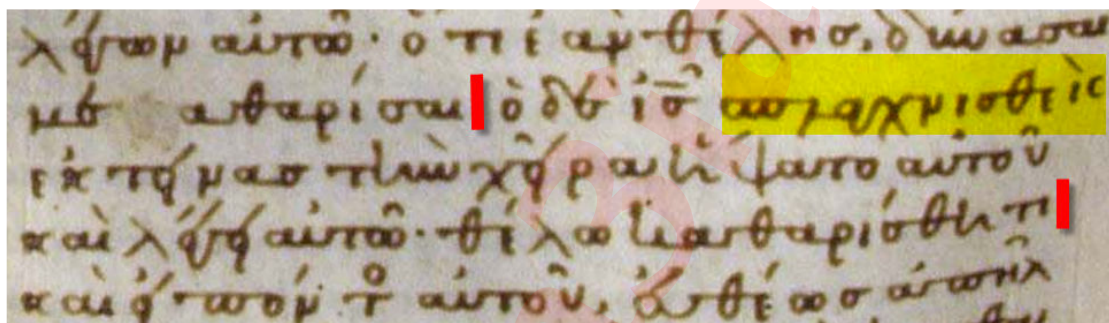 λέγων αὐτῶ· ὅ τι ἐὰν θέλησ, δύνασαι
μὲ αθαρίσαι ὁ δὲ ἰ̅σ̅ ασπλαγχνισθεὶς
ἐκτείνασ τὴν χεῖρα ἥψατο αὐτοῦ
καὶ λέγει αὐτῶ· θέλω καθαρίσθητι
καὶ εἰπόν τ αὐτοῦ, εὐθέωσ ἀπηλ